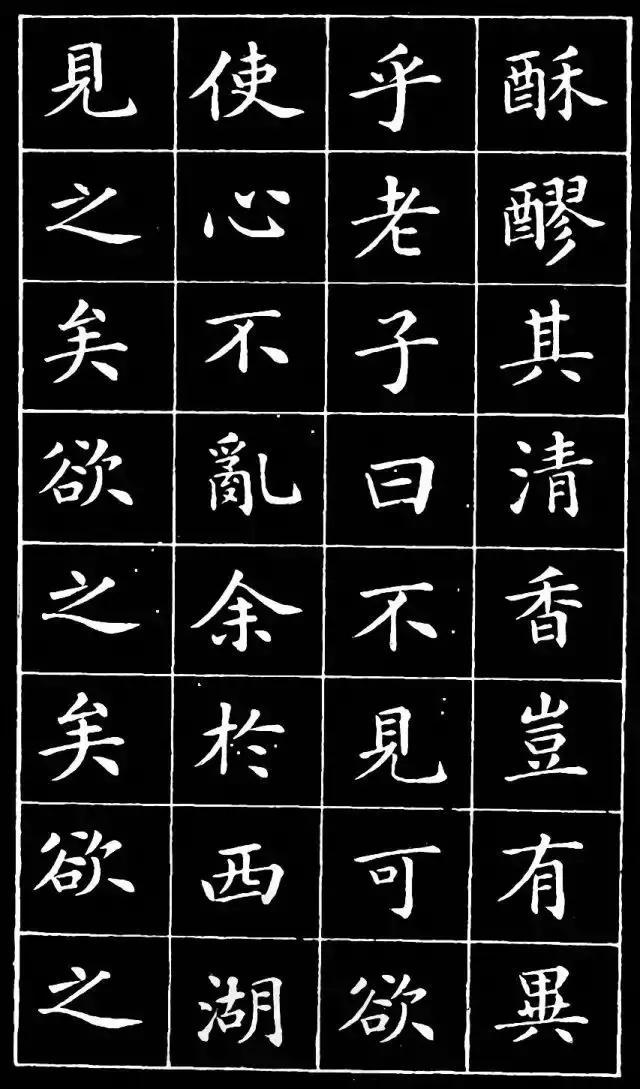 酥醪其清香豈有異
乎老子曰不見可欲
使心不亂余於西湖
見之矣欲之矣欲之